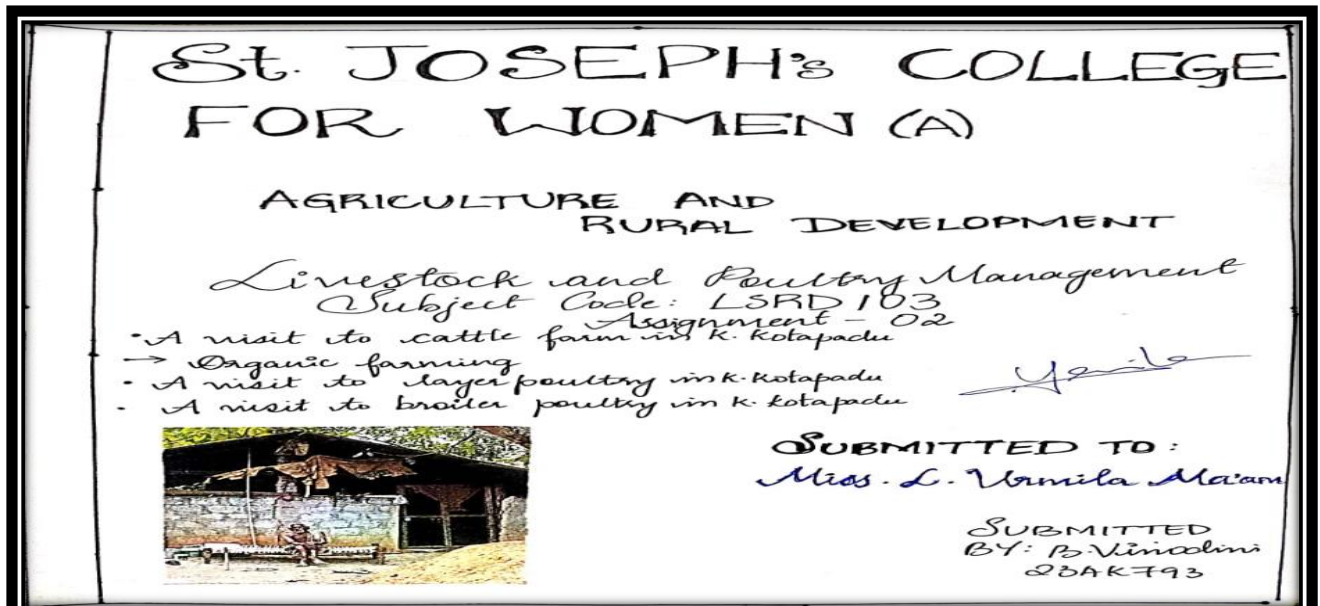 St. JOSEPH's COLLEGE
FOR WOMEN (A)
AGRICULTURE AND
RURAL DEVELOPMENT
Livestock and Poultry Management
Subject Code: LSRD 103
Assignment - 02
• A visit to cattle farm in K. Kotapadu
→ Organic farming
• A visit to layer poultry in K. Kotapadu
• A visit to broiler poultry in K. Kotapadu
SUBMITTED TO:
Miss. L. Urmila Ma'am
SUBMITTED
BY: B. Vinodini
23AK793